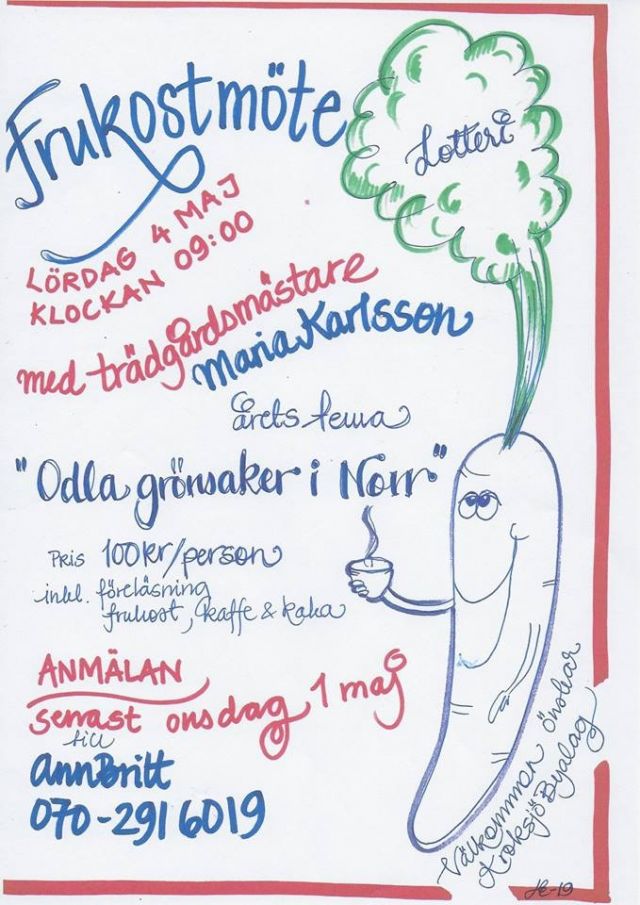 Frukostmöte
Lotteri
LÖRDAG 4 MAJ
KLOCKAN 09:00
med trädgårdsmästare
Maria Karlsson
årets tema
"Odla grönsaker i Norr"
Pris 100kr/person
inkl. föreläsning
frukost, kaffe & kaka
ANMÄLAN
senast onsdag 1 maj
till
AnnBritt
070-291 6019
Välkommen önskar
Kroksjö Byalag
HE-19